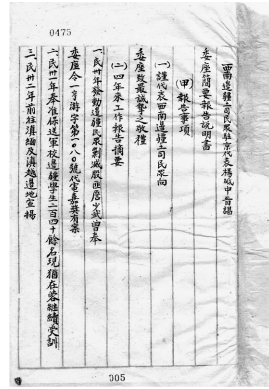 0475
西南邊疆土司民眾駐京代表楊砥中晉謁
委座簡要報告說明書
(甲)報告事項
(一)謹代表西南邊疆土司民眾向
委座致最誠摯之敬禮
(二)四年來工作報告摘要
一、民卅年發動邊疆民眾剿滅股匪唐少武曾奉
委座令一亨游字第一〇八〇號代電嘉獎有案
二、民卅一年奉准保送軍校邊疆學生二百四十餘名現猶在蓉繼續受訓
三、民卅二年前往滇緬及滇越邊地宣揚
005